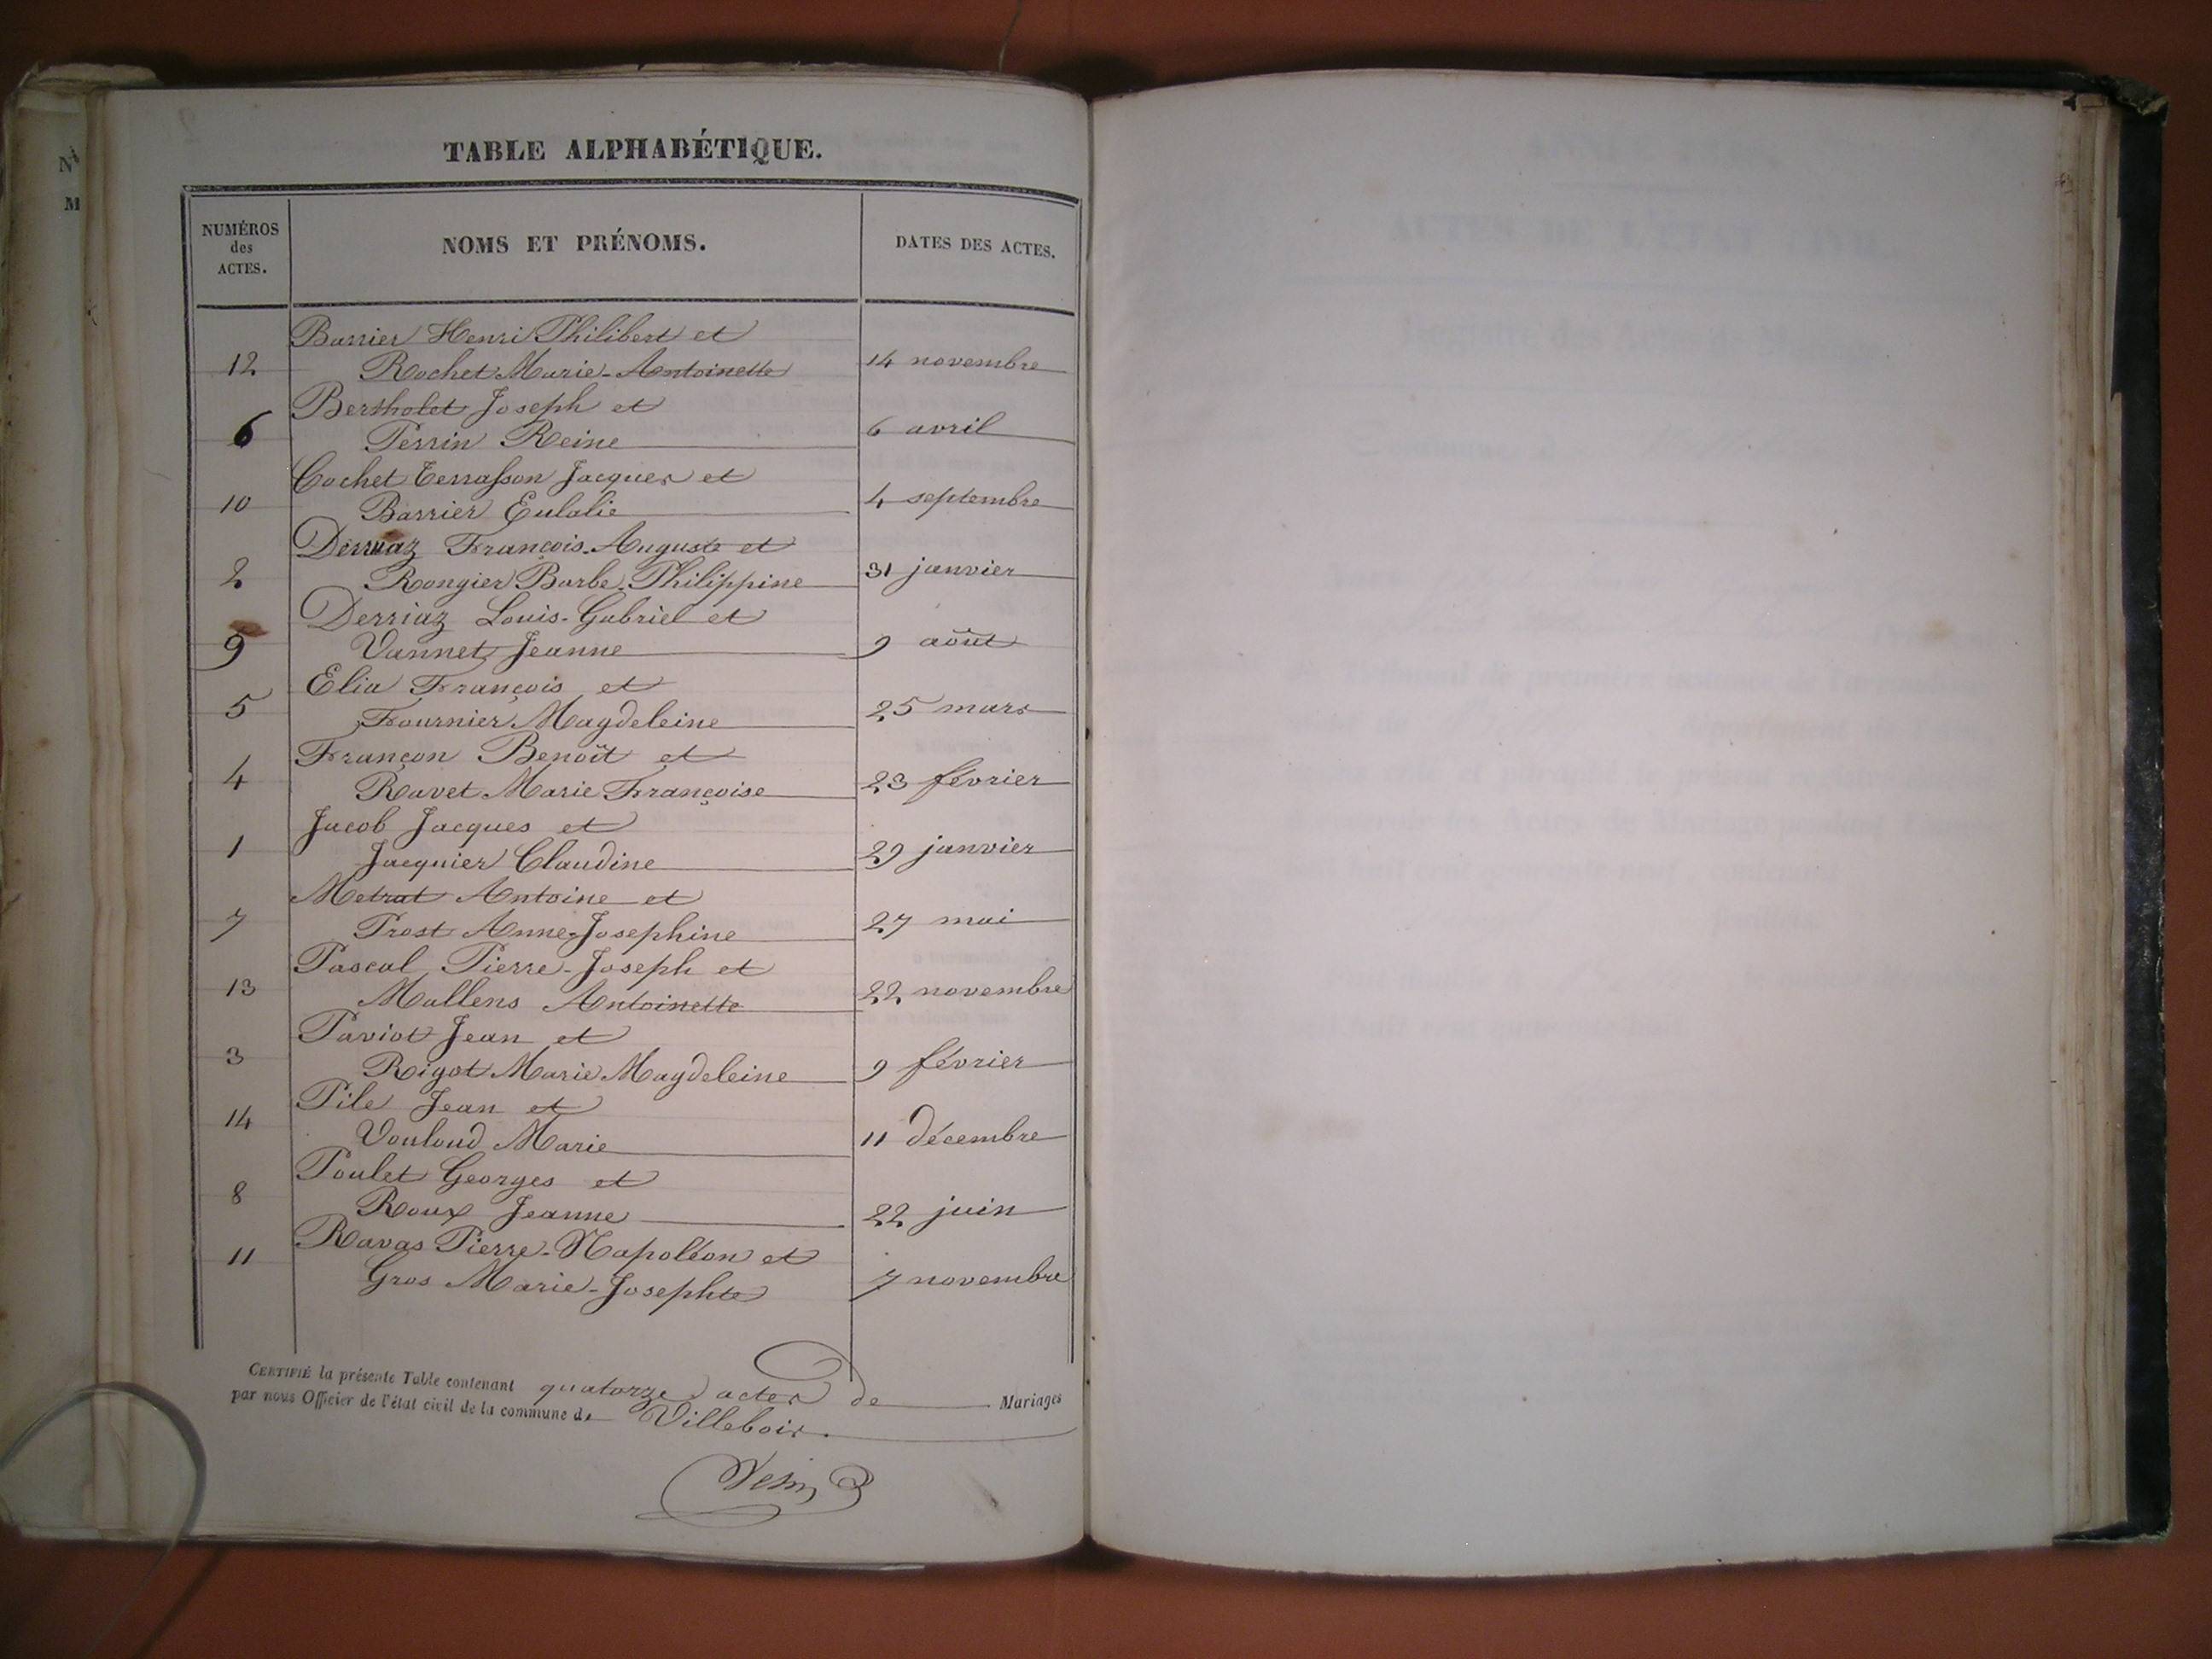 TABLE ALPHABÉTIQUE.
NUMÉROS
des
ACTES.
NOMS ET PRÉNOMS.
DATES DES ACTES.
Barrier Henri Philibert et
12 Rochet Marie-Antoinette 14 novembre
Bertholet Joseph et
6 Perrin Reine 6 avril
Cochet Terrasson Jacques et
10 Barrier Eulalie 4 septembre
Derriaz François-Auguste et
2 Rongier Barbe-Philippine 31 janvier
Derriaz Louis-Gabriel et
9 Vannet Jeanne 9 août
Elia François et
5 Fournier Magdeleine 25 mars
Françon Benoît et
4 Ravet Marie Françoise 23 février
Jacob Jacques et
1 Jacquier Claudine 29 janvier
Metrat Antoine et
7 Prost Anne-Josephine 27 mai
Pascal Pierre-Joseph et
13 Mallens Antoinette 22 novembre
Paviot Jean et
3 Rigot Marie Magdeleine 9 février
Pile Jean et
14 Vouloud Marie 11 décembre
Poulet Georges et
8 Roux Jeanne 22 juin
Ravas Pierre-Napoléon et
11 Gros Marie-Josephte 7 novembre
CERTIFIÉ la présente Table contenant quatorze actes de Mariages
par nous Officier de l'état civil de la commune de Villebois.